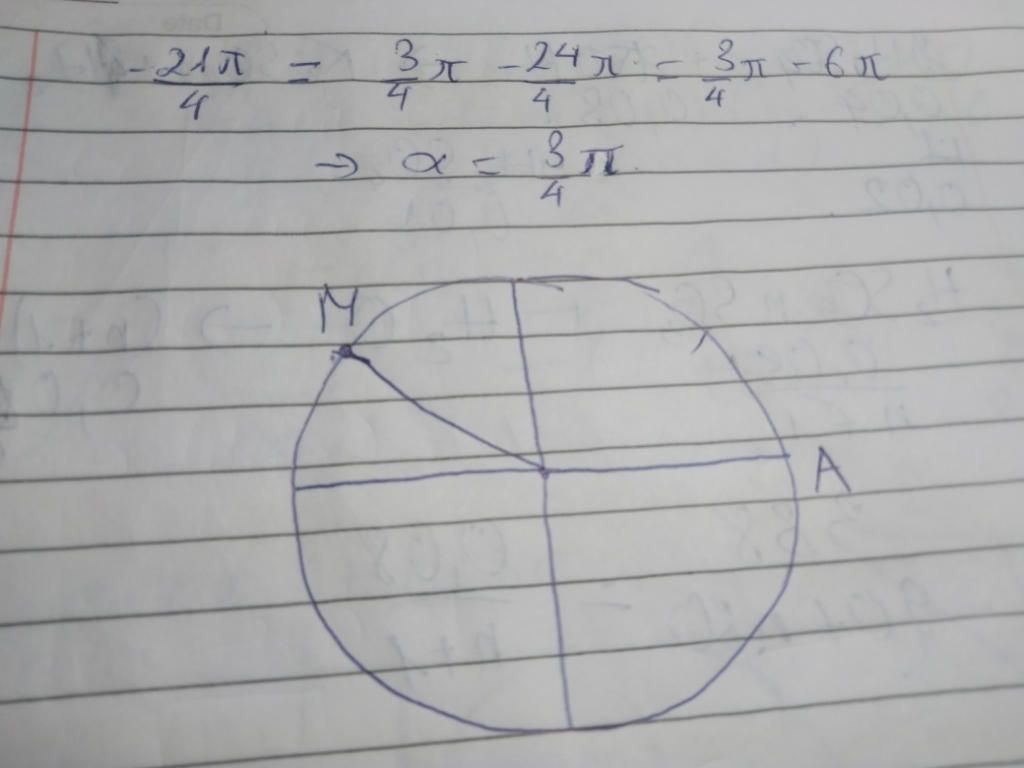 -21π/4 = 3/4 π - 24/4 π = 3/4 π - 6π
→ α = 3/4 π
M
A